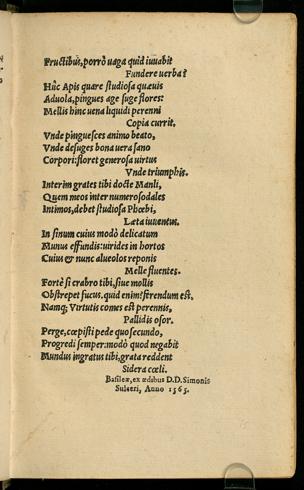 Fructibus, porrò uaga quid iuuabit
Fundere uerba?
Hûc Apis quare studiosa quæuis
Aduola, pingues age suge flores:
Mellis hinc uena liquidi perenni
Copia currit.
Vnde pinguesces animo beato,
Vnde desuges bona uera sano
Corpori: floret generosa uirtus
Vnde triumphis.
Interim grates tibi docte Manli,
Quem meos inter numero sodales
Intimos, debet studiosa Phœbi,
Læta iuuentus.
In sinum cuius modò delicatum
Munus effundis: uirides in hortos
Cuius & nunc alueolos reponis
Melle fluentes.
Fortè si crabro tibi, siue mollis
Obstrepet fucus. quid enim? ferendum est.
Namq; Virtutis comes est perennis,
Pallidus osor.
Perge, cœpisti pede quo secundo,
Progredi semper: modò quod negabit
Mundus ingratus tibi, grata reddent
Sidera cœli.
Basileæ, ex ædibus D.D. Simonis
Sulceri, Anno 1565.